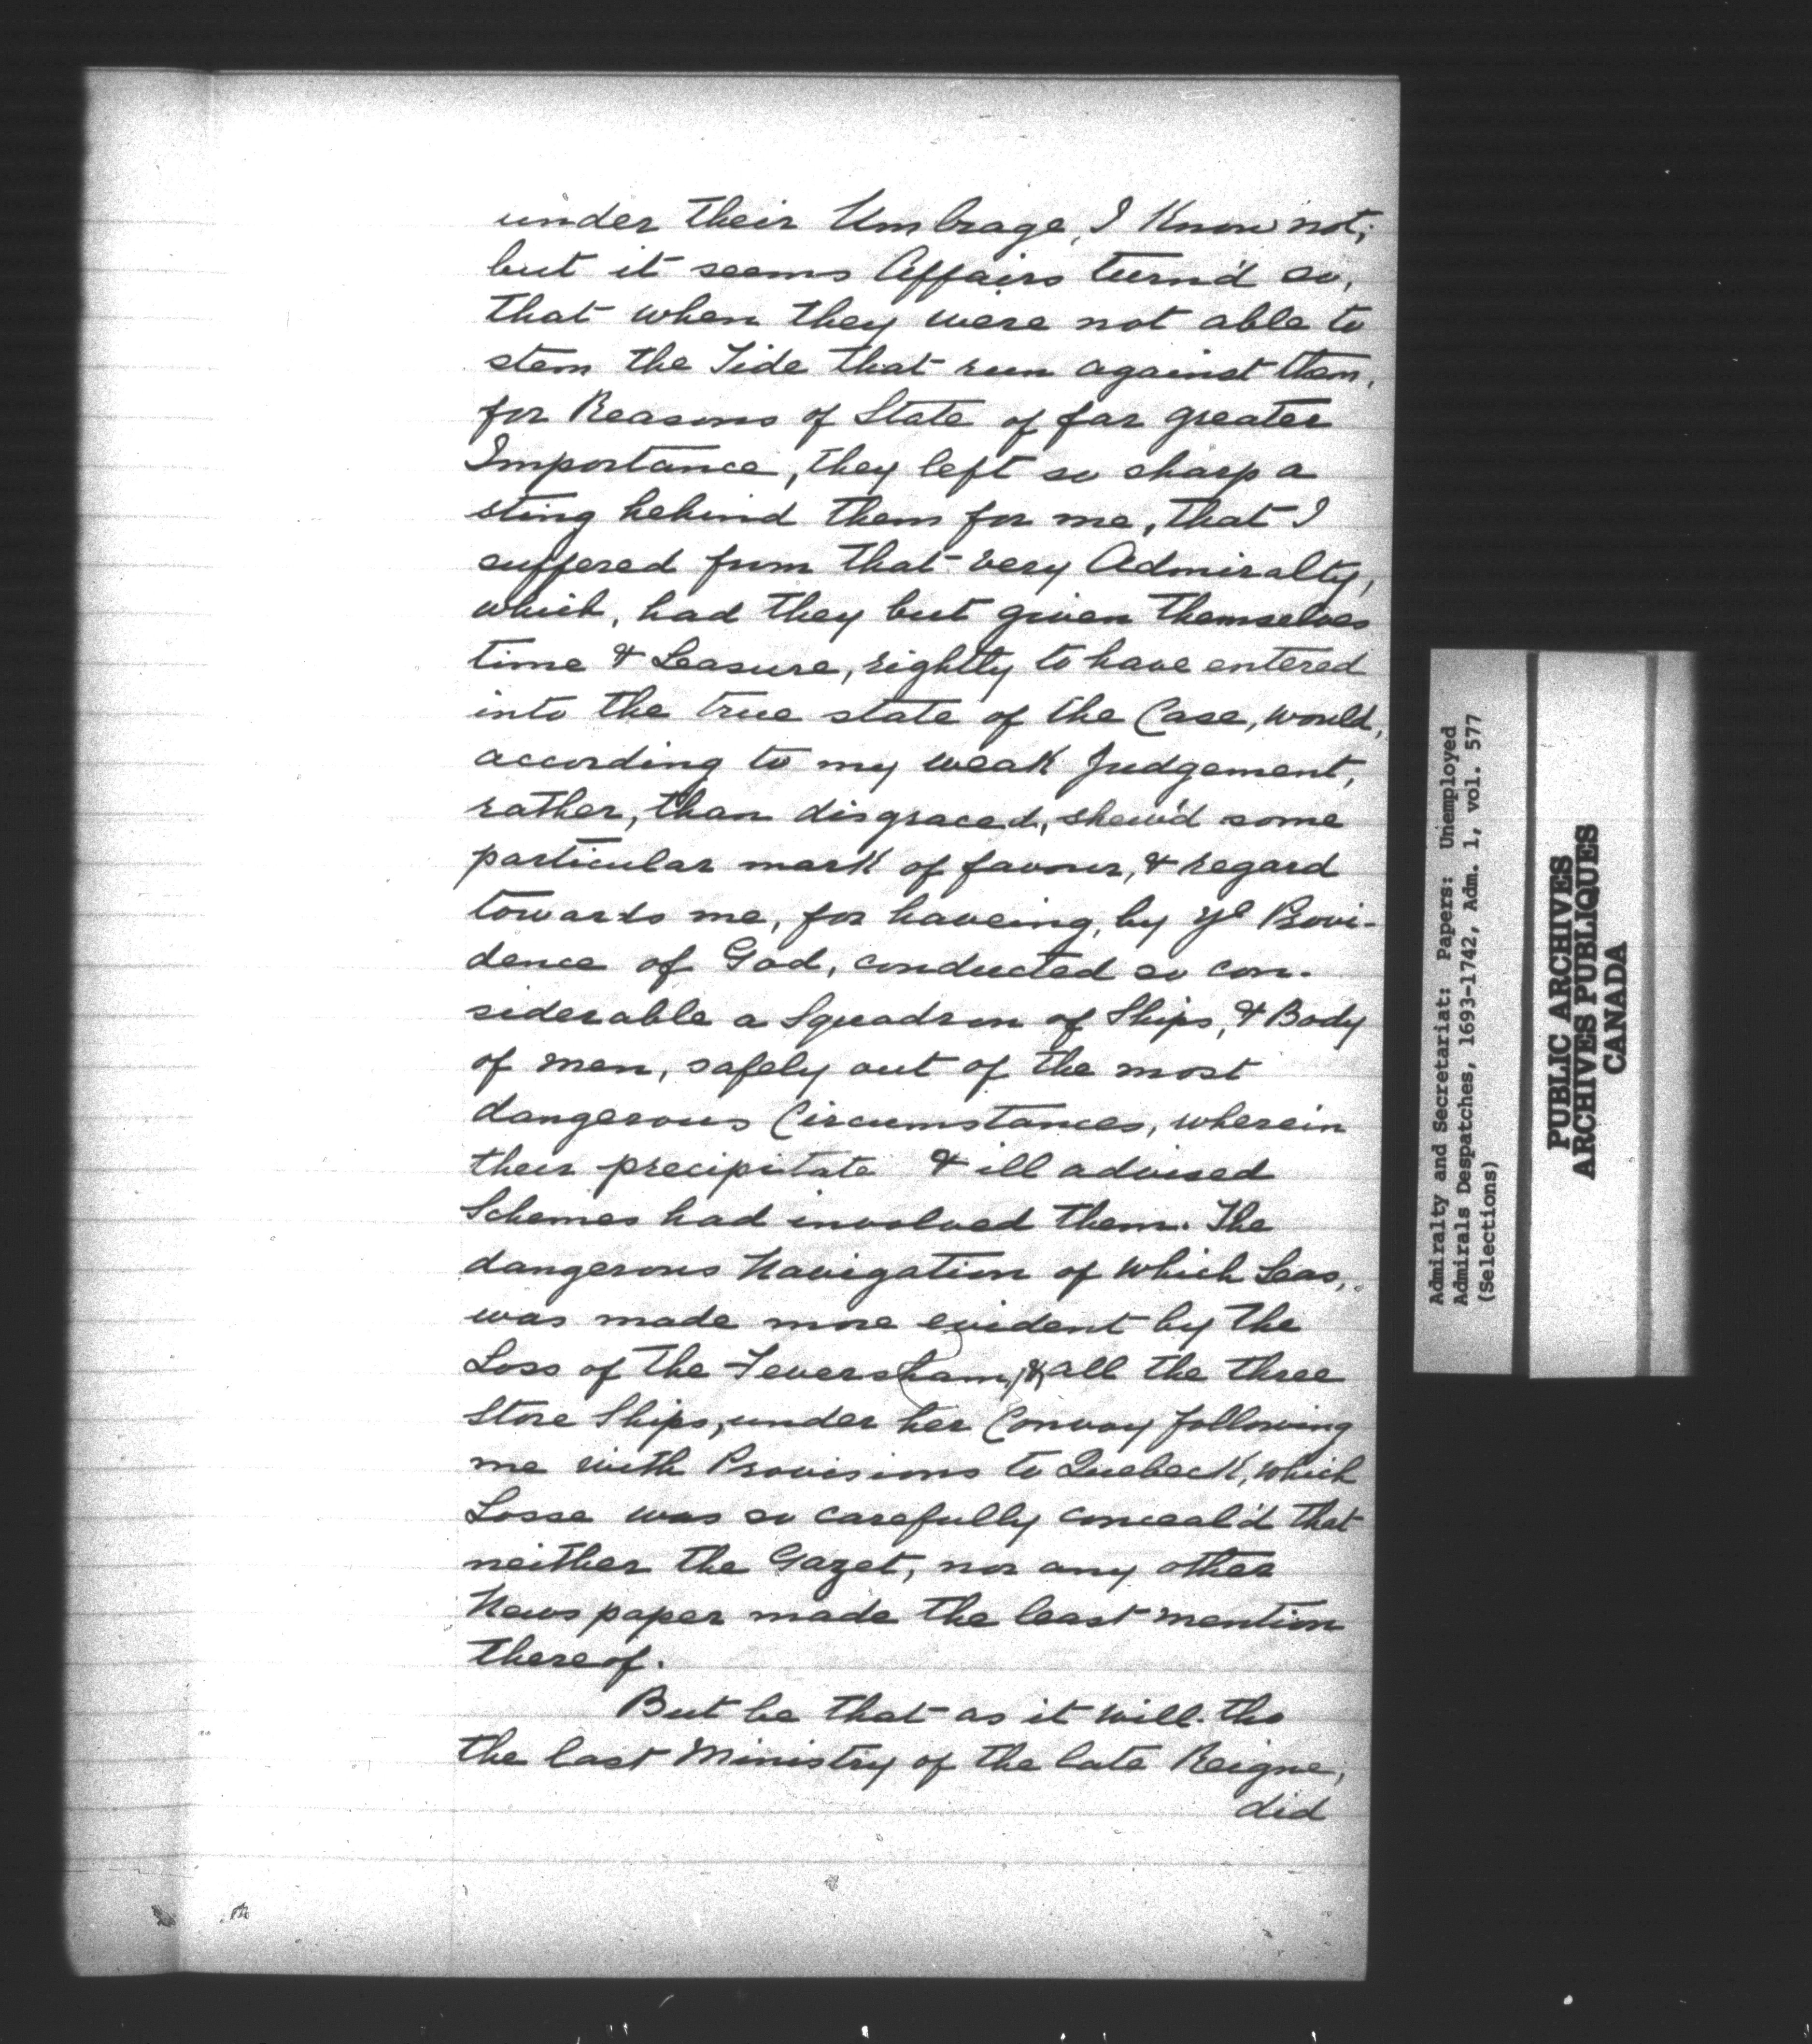 under their Umbrage, I Know not;
but it seems Affairs turn'd so,
that when they were not able to
stem the Tide that run against them,
for Reasons of State of far greater
Importance, they left so sharp a
sting behind them for me, that I
suffered from that very Admiralty,
which, had they but given themselves
time & Leasure, rightly to have entered
into the true state of the Case, would,
according to my weak Judgement,
rather, than disgraced, shew'd some
particular mark of favour, & regard
towards me, for haveing, by ye Provi-
dence of God, conducted so con-
siderable a Squadron of Ships, & Body
of men, safely out of the most
dangerous Circumstances, wherein
their precipitate & ill advised
Schemes had involved them. The
dangerous Navigation of which Seas,
was made more evident by the
Loss of the Feversham, & all the three
Store Ships, under her Convoy following
me with Provisions to Quebeck, which
Losse was so carefully conceal'd that
neither the Gazet, nor any other
News paper made the least mention
thereof.
But be that as it will. tho
the last Ministry of the late Reigne,
did
Admiralty and Secretariat: Papers: Unemployed
Admirals Despatches, 1693-1742, Adm. 1, vol. 577
(Selections)
PUBLIC ARCHIVES
ARCHIVES PUBLIQUES
CANADA